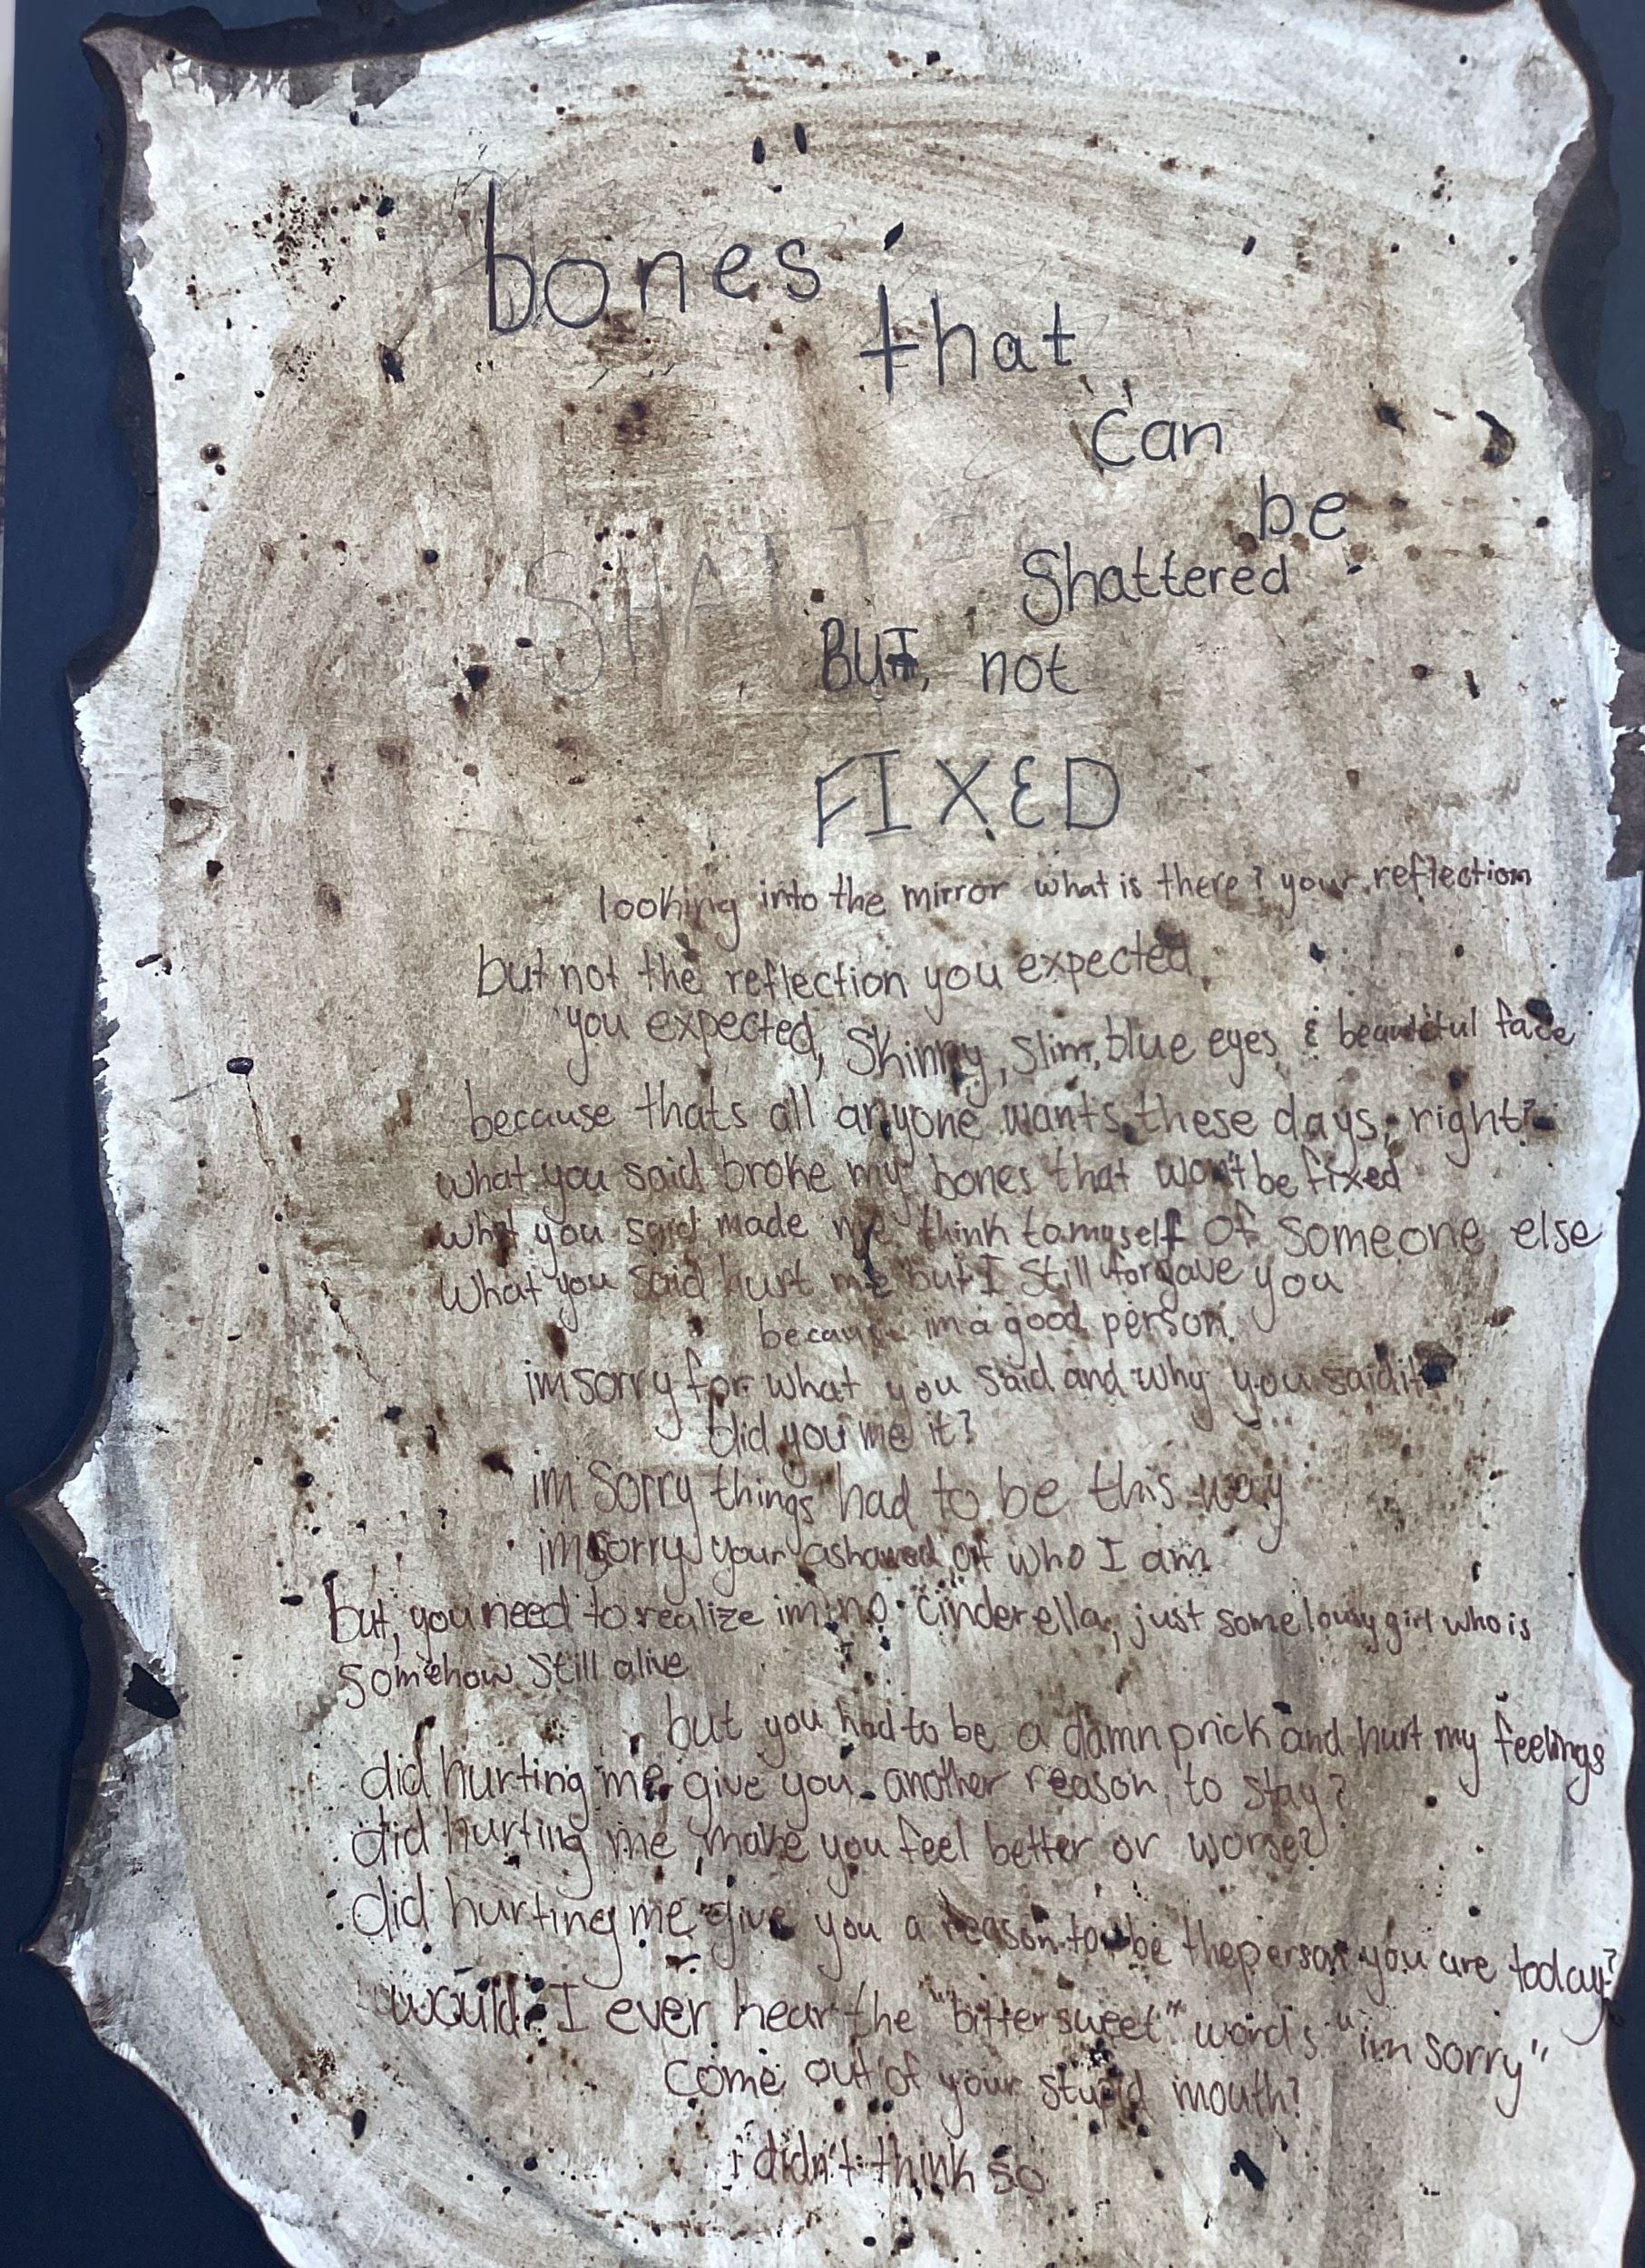 bones
that
can
be
Shattered
BUT, not
SHATT
FIXED
looking into the mirror what is there? your reflection
but not the reflection you expected
you expected, Skinny, Slim, blue eyes & beautiful face
because thats all anyone wants these days, right?
what you said broke my bones that won't be fixed
what you said made me think to myself of someone else
what you said hurt me but I still forgave you
because im a good person.
im sorry for what you said and why you said it
did you me it?
im sorry things had to be this way
im sorry your ashamed of who I am
but, you need to realize im no Cinderella, just some lousy girl who is
somehow still alive
but you had to be a damn prick and hurt my feelings
did hurting me give you another reason to stay?
did hurting me make you feel better or worse?
did hurting me give you a reason to be the person you are today?
would I ever hear the "bittersweet" words "im sorry"
come out of your stupid mouth?
i didn't think so